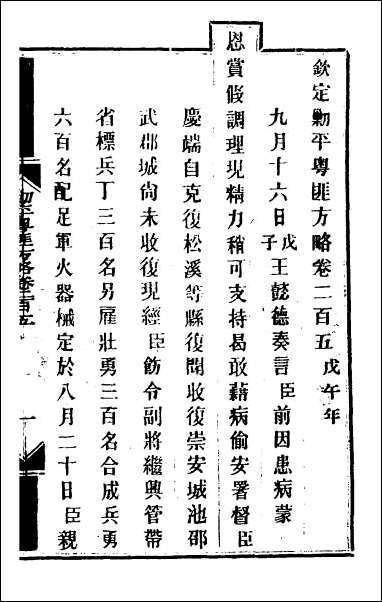 欽定勦平粵匪方略卷二百五戊午年
九月十六日戊子王懿德奏言臣前因患病蒙
恩賞假調理現精力稍可支持曷敢藉病偷安署督臣
慶端自克復松溪等縣復間收復崇安城池邵
武郡城尙未收復現經臣飭令副將繼興管帶
省標兵丁三百名另雇壯勇三百名合成兵勇
六百名配足軍火器械定於八月二十日臣親
卷二百五
一